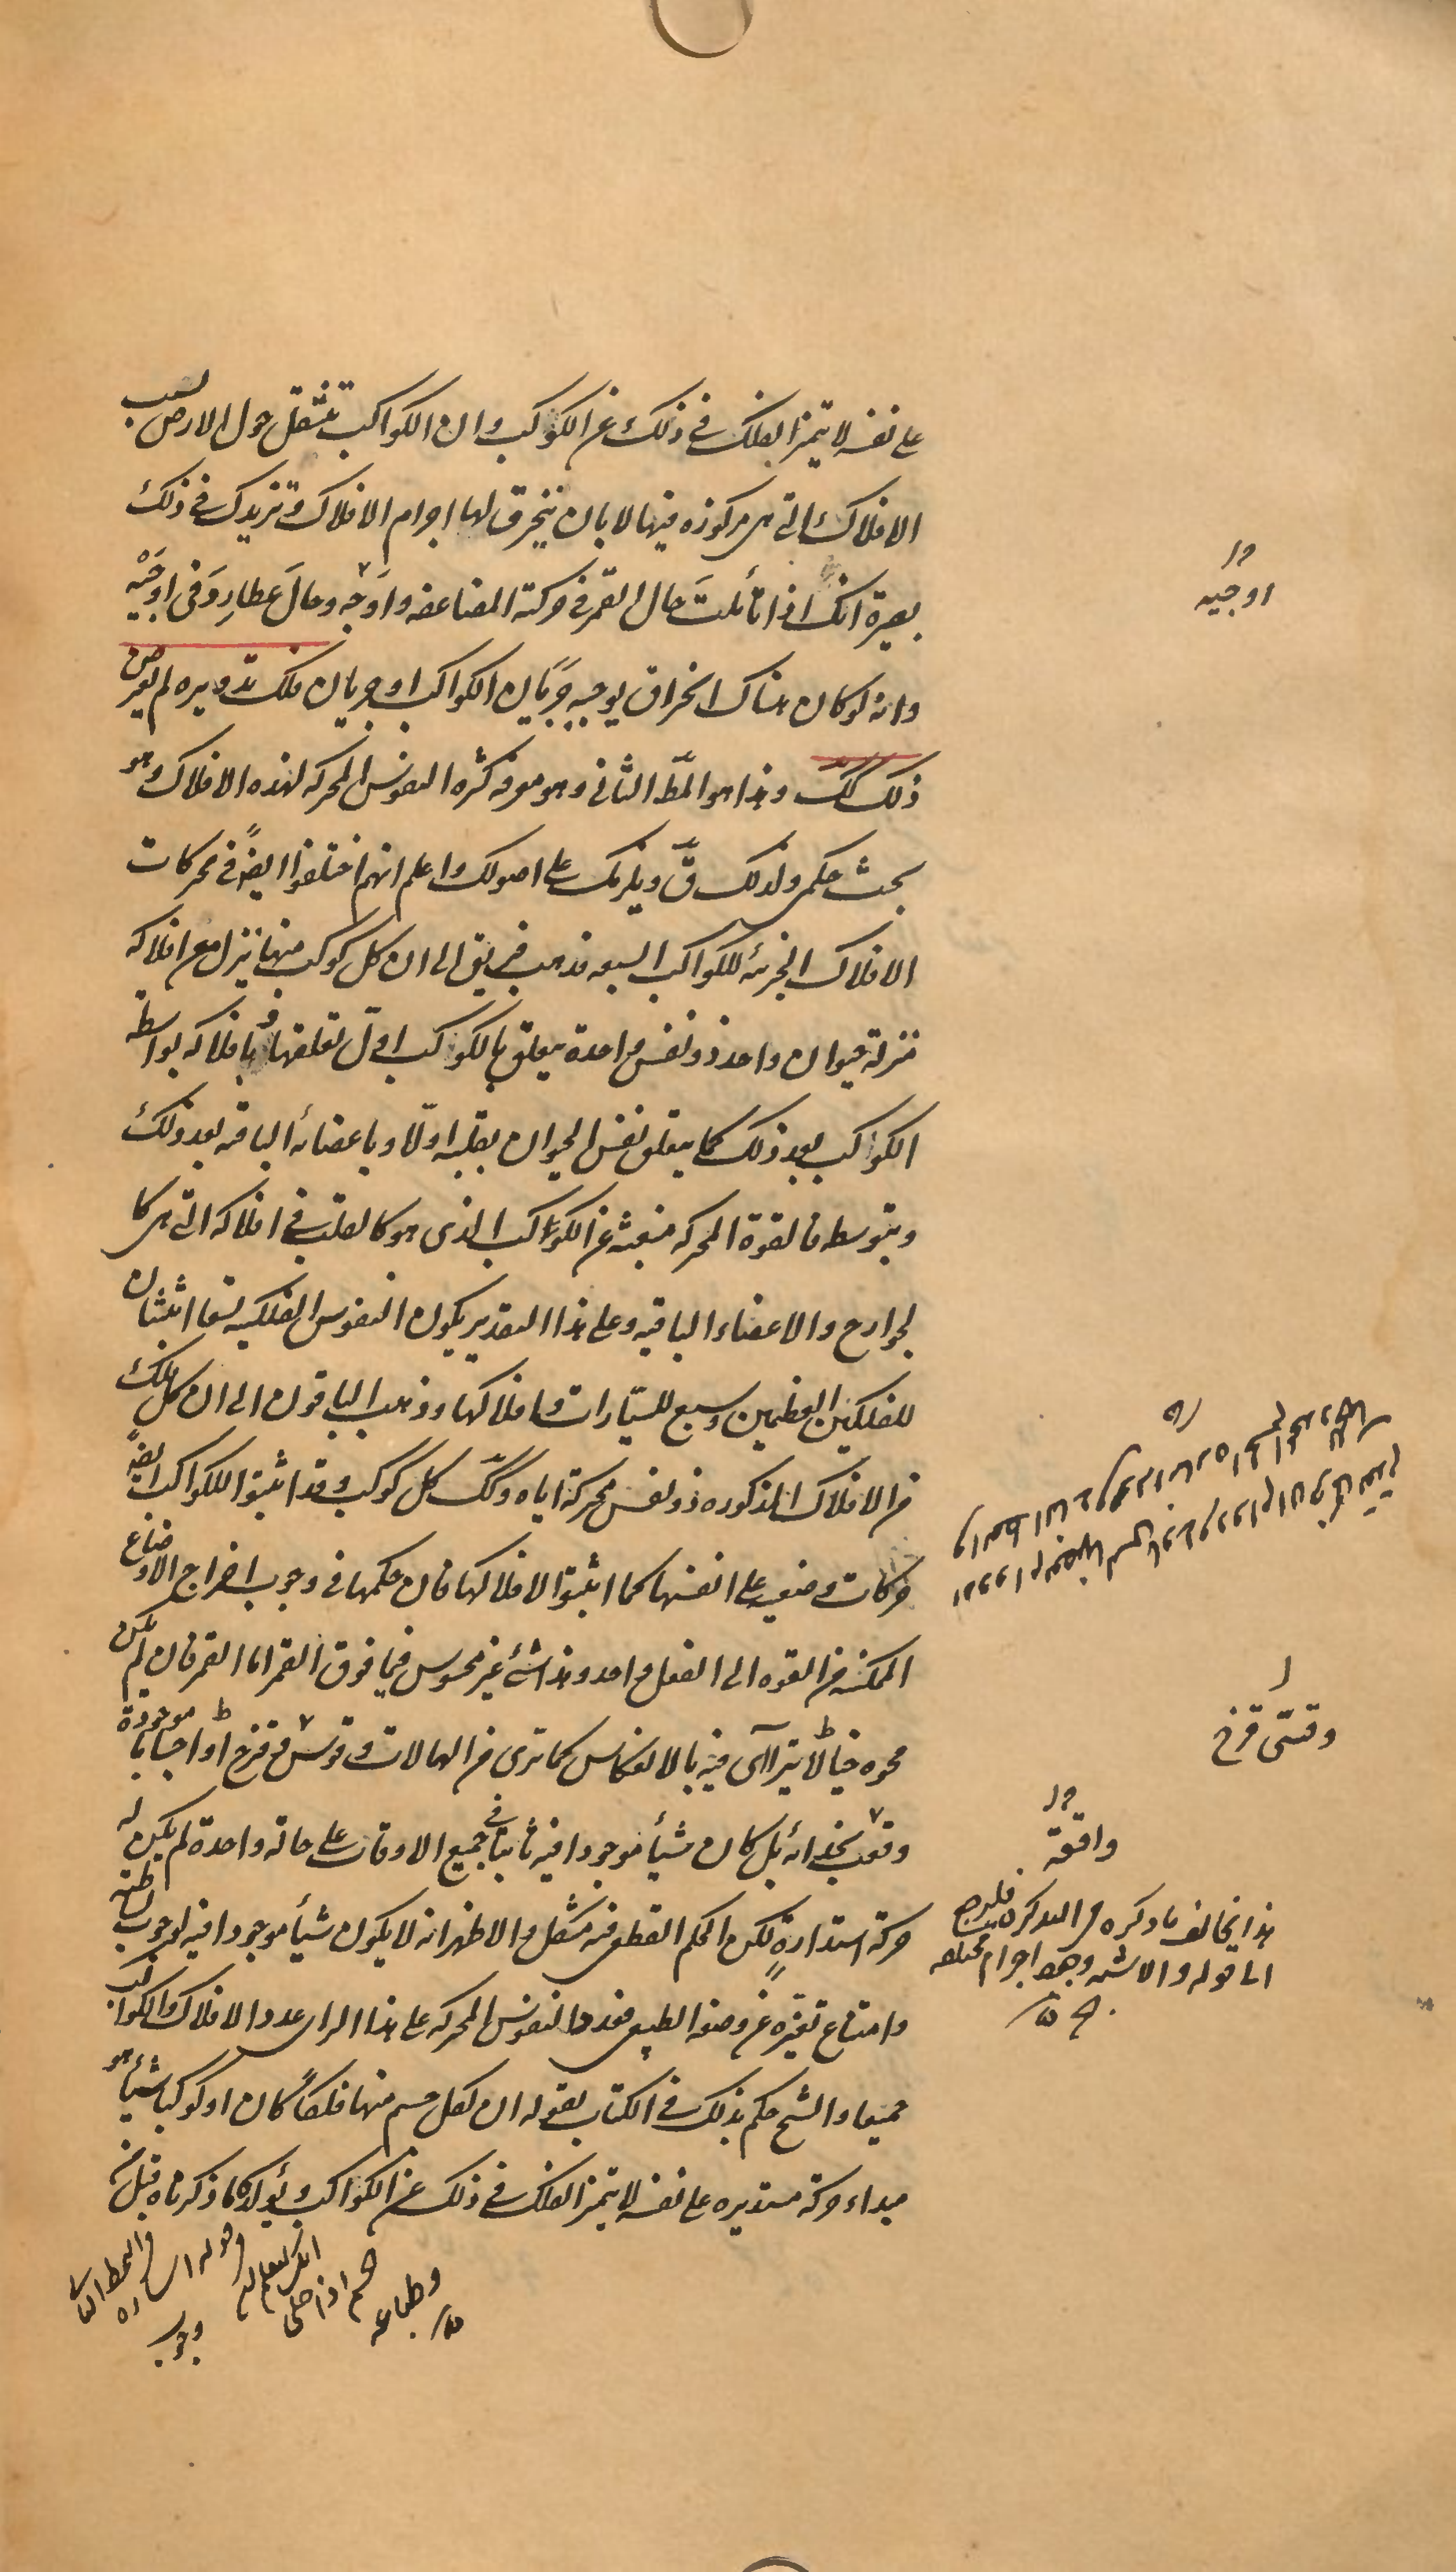 على نفسه لا يتميز الفلك في ذلك عن الكواكب وان الكواكب تنتقل حول الارض بسبب
الافلاك التي هي مركوزه فيها لا بان ينخرق لها اجرام الافلاك وتزيدك في ذلك
بصيرة انك اذا تأملت حال القمر في حركته المضاعفه واوجه وحال عطارد في اوجيه
وانه لو كان هناك انخراق يوجبه جريان الكواكب او جريان فلك تدويره لم يعرض
ذلك كك وهذا هو المط الثاني وهو معرفه كثره النفوس المحركه لهذه الافلاك وهو
بحث حكمي ولذلك ق ويلزمك على اصولك واعلم انهم اختلفوا ايضً في محركات
الافلاك الجزئه للكواكب السبعه فذهب فريق الى ان كل كوكب منها ينزل مع افلاكه
منزلة حيوان واحد ذو نفس واحدة يتعلق بالكواكب اول تعلقها وبافلاكه بواسطه
الكواكب بعد ذلك كما يتعلق نفس الحيوان بقلبه اولًا وباعضائه الباقيه بعد ذلك
وبتوسطه فالقوة المحركه منبعثه عن الكواكب الذى هو كالقلب في افلاكه التي هي كا
لجوارح والاعضاء الباقيه وعلى هذا التقدير يكون النفوس الفلكيه تسعا اثنتان
للفلكين العظيمين وسبع للسيّارات وافلاكها وذهب الباقون الى ان كل فلك
من الافلاك المذكوره ذو نفس محركة اياه وكك كل كوكب وقد اثبتوا للكواكب ايضً
حركات وضعيه على انفسها كما اثبتوا لافلاكها فان حكمها في وجوب اخراج الاوضاع
الممكنه من القوه الى الفعل واحد وهذا شئ غير محسوس فيما فوق القمر اما القمر فان لم يكن
محوه خيالًا يترآى فيه بالانعكاس كما ترى من الهالات وقوس قزح او اجساما موجودة
وقعت بحذائه بل كان شيأ موجودا فيه ثابتا في جميع الاوقات على حاله واحدة لم يكن له
حركة استدارةٍ لكن الحكم القطعى فيه مشكل والاظهر انه لا يكون شيأ موجودا فيه لوجوب بساطته
وامتناع تغيره عن وضعه الطبيعى فعدد النفوس المحركه على هذا الراى عدد الافلاك والكواكب
جميعا والشيخ حكم بذلك في الكتاب بقوله ان لكل جسم منها فلكًا كان او كوكبا شيأ هو
مبداء حركة مستديره على نفسه لا يتميز الفلك في ذلك عن الكواكب ويؤكد ما ذكرناه قبل من
اوجيه
وقسى قزح
واقعة
هذا يخالف ما ذكره في التذكره
الى قوله والاشبه اجرام مختلفه